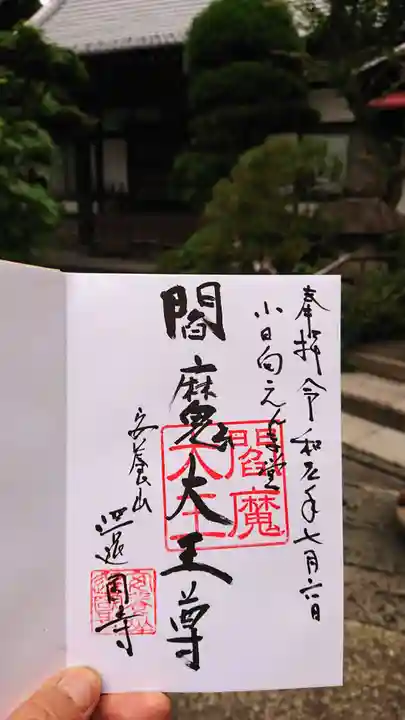 奉拝 令和元年七月六日
小日向えんま堂
閻魔大王尊
閻魔大王
安養山
還国寺